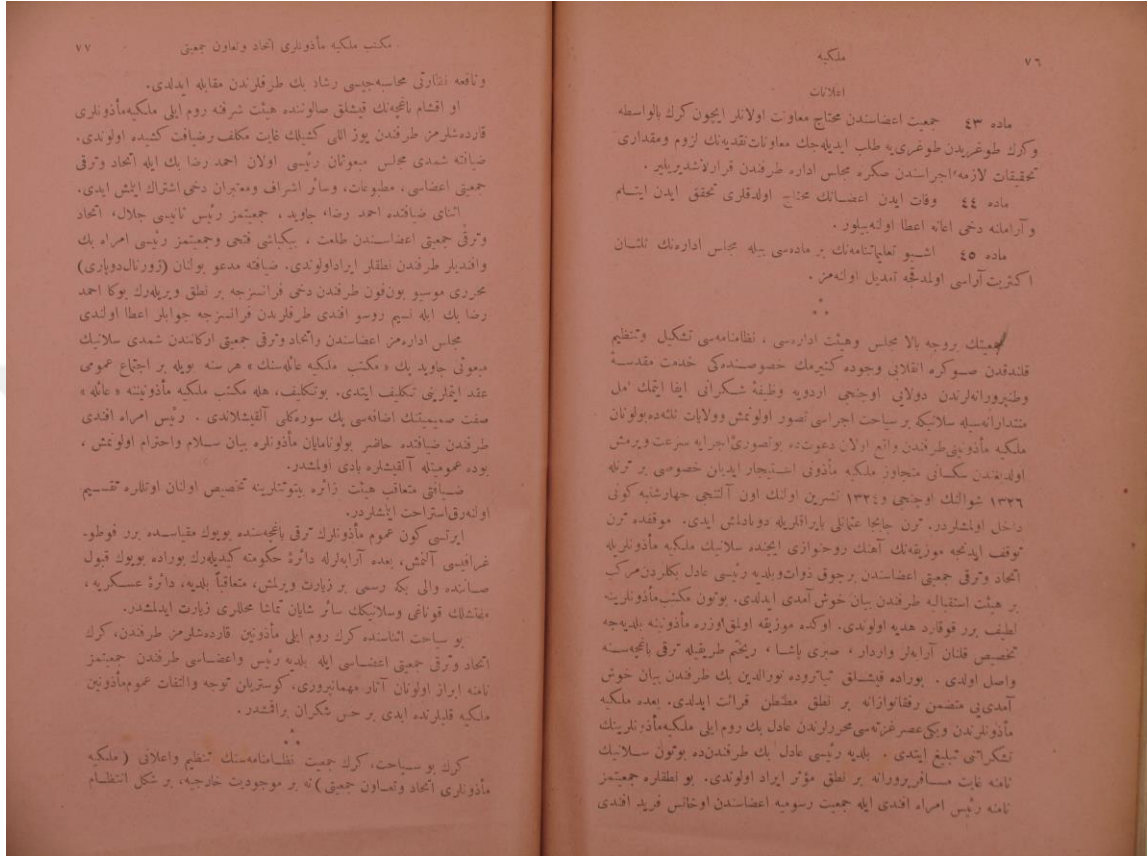 ٧٦
ملكيه
اعلانات
ماده ٤٣ جمعيت اعضاسندن محتاج معاونت اولانلر ايچون كرك بالواسطه
وكرك طوغريدن طوغرى‌يه طلب ايديله‌جك معاونات نقديه‌نك لزوم ومقدارى
تحقيقات لازمه اجراسندن صكره مجلس اداره طرفندن قرارلاشديريلير .
ماده ٤٤ وفات ايدن اعضانك محتاج اولدقلرى تحقق ايدن ايتام
و آرامله دخى اعانه اعطا اولنه‌بيلور .
ماده ٤٥ اشبو تعليماتنامه‌نك بر ماده‌سى بيله مجلس اداره‌نك ثلثان
اكثريت آراسى اولمدقجه تعديل اولنه‌مز .
* *
جمعيتك بروجه بالا مجلس وهيئت اداره‌سى ، نظامنامه‌سى تشكيل وتنظيم
قلندقدن صوكره انقلابى وجوده كتيرمك خصوصنده‌كى خدمت مقدسهٔ
وطنپرورانه‌لرندن دولايى اوچنجى اردويه وظيفهٔ شكرانى ايفا ايتمك امل
متدارانه‌سيله سلانيكه بر سياحت اجراسى تصور اولونمش وولايات ثلثه‌ده‌بولونان
ملكيه مأذونينى طرفندن واقع اولان دعوت‌ده بوتصورىٔ اجرايه سرعت ويرمش
اولديغندن سكسانى متجاوز ملكيه مأذونى استيجار ايديلن خصوصى بر ترنله
١٣٢٦ شوالنك اوچنجى و١٣٢٤ تشرين اولنك اون آلتنجى چهارشنبه كونى
داخل اولمشلردر. ترن جابجا عثمانلى بايراقلريله دوناديلمش ايدى. موقفده ترن
توقف ايدنجه موزيقه‌نك آهنك روحنوازى ايچنده سلانيك ملكيه مأذونلريله
اتحاد وترقى جمعيتى اعضاسندن برچوق ذوات‌وبلديه رئيسى عادل بكلردن‌مركب
بر هيئت استقباليه طرفندن بيان خوش آمدى ايدلدى. بوتون مكتب‌مأذونلرينه
لطيف برر قوقارد هديه اولوندى. اوكده موزيقه اولمق‌اوزره مأذونينه بلديه‌جه
تخصيص قلنان آرابه‌لر واردار ، صبرى پاشا ، ريختم طريقيله ترقى باغچه‌سنه
واصل اولدى . بوراده قيشلق تياتروده نورالدين بك طرفندن بيان خوش
آمدى‌يى متضمن رفقانوازانه بر نطق مطنطن قرائت ايدلدى. بعده ملكيه
مأذونلرندن ويكى‌عصر غزته‌سى محررلرندن عادل بك روم ايلى ملكيه‌مأذونلرينك
تشكراتنى تبليغ ايتدى . بلديه رئيسى عادل بك طرفندن‌ده بوتون سلانيك
نامنه غايت مسافرپرورانه بر نطق مؤثر ايراد اولوندى. بو نطقلره جمعيتمز
نامنه رئيس امراه افندى ايله جمعيت رسميه اعضاسندن اوخانس فريد افندى
مكتب ملكيه مأذونلرى اتحاد وتعاون جمعيتى
٧٧
ونافعه نظارتى محاسبه‌جيسى رشاد بك طرفلرندن مقابله ايدلدى.
او اقشام باغچه‌نك قيشلق صالوننده هيئت شرفنه روم ايلى ملكيه‌مأذونلرى
قارده‌شلرمز طرفندن يوز اللى كشيلك غايت مكلف برضيافت كشيده اولوندى.
ضيافته شمدى مجلس مبعوثان رئيسى اولان احمد رضا بك ايله اتحاد وترقى
جمعيتى اعضاسى، مطبوعات، وسائر اشراف ومعتبران دخى اشتراك ايتمش ايدى.
اثناى ضيافتده احمد رضا، جاويد ، جمعيتمز رئيس ثانيسى جلال، اتحاد
وترقى جمعيتى اعضاسندن طلعت ، بيكباشى فتحى وجمعيتمز رئيسى امراه بك
وافنديلر طرفندن نطقلر ايراداولوندى. ضيافته مدعو بولنان (ژورنال‌دوپارى)
محررى موسيو بون‌فون طرفندن دخى فرانسزجه بر نطق ويريله‌رك بوكا احمد
رضا بك ايله نسيم روسو افندى طرفلرندن فرانسزجه جوابلر اعطا اولندى
مجلس اداره‌مز اعضاسندن واتحاد وترقى جمعيتى اركانندن شمدى سلانيك
مبعوثى جاويد بك « مكتب ملكيه عائله‌سنك » هر سنه بويله بر اجتماع عمومى
عقد ايتملرينى تكليف ايتدى. بوتكليف، هله مكتب ملكيه مأذونيننه « عائله »
صفت صميميتنك اضافه‌سى پك سوره‌كلى آلقيشلاندى . رئيس امراه افندى
طرفندن ضيافتده حاضر بولونامايان مأذونلره بيان سلام واحترام اولونمش ،
بوده عموميتله آلقيشلره بادى اولمشدر.
ضيافتى متعاقب هيئت زائره بيتوتتلرينه تخصيص اولنان اوتللره تقسيم
اولنه‌رق‌استراحت ايتمشلردر.
ايرتسى كون عموم مأذونلرك ترقى باغچه‌سنده بويوك مقياسده برر فوطو-
غرافيسى آلنمش، بعده آرابه‌لرله دائرهٔ حكومته كيديله‌رك بوراده بويوك قبول
صالننده والى بكه رسمى بر زيارت ويرلمش، متعاقباً بلديه، دائرهٔ عسكريه ،
مفتشلك قوناغى وسلانيكك سائر شايان تماشا محللرى زيارت ايدلمشدر.
بو سياحت اثناسنده كرك روم ايلى مأذونين قارده‌شلرمز طرفندن، كرك
اتحاد وترقى جمعيتى اعضاسى ايله بلديه رئيس واعضاسى طرفندن جمعيتمز
نامنه ابراز اولونان آثار مهمانپرورى، كوستريلن توجه والتفات عموم‌مأذونين
ملكيه قلبلرنده ابدى بر حس شكران براقمشدر.
* *
كرك بو سياحت، كرك جمعيت نظامنامه‌سنك تنظيم واعلانى (ملكيه
مأذونلرى اتحاد وتعاون جمعيتى)نه بر موجوديت خارجيه، بر شكل انتظام